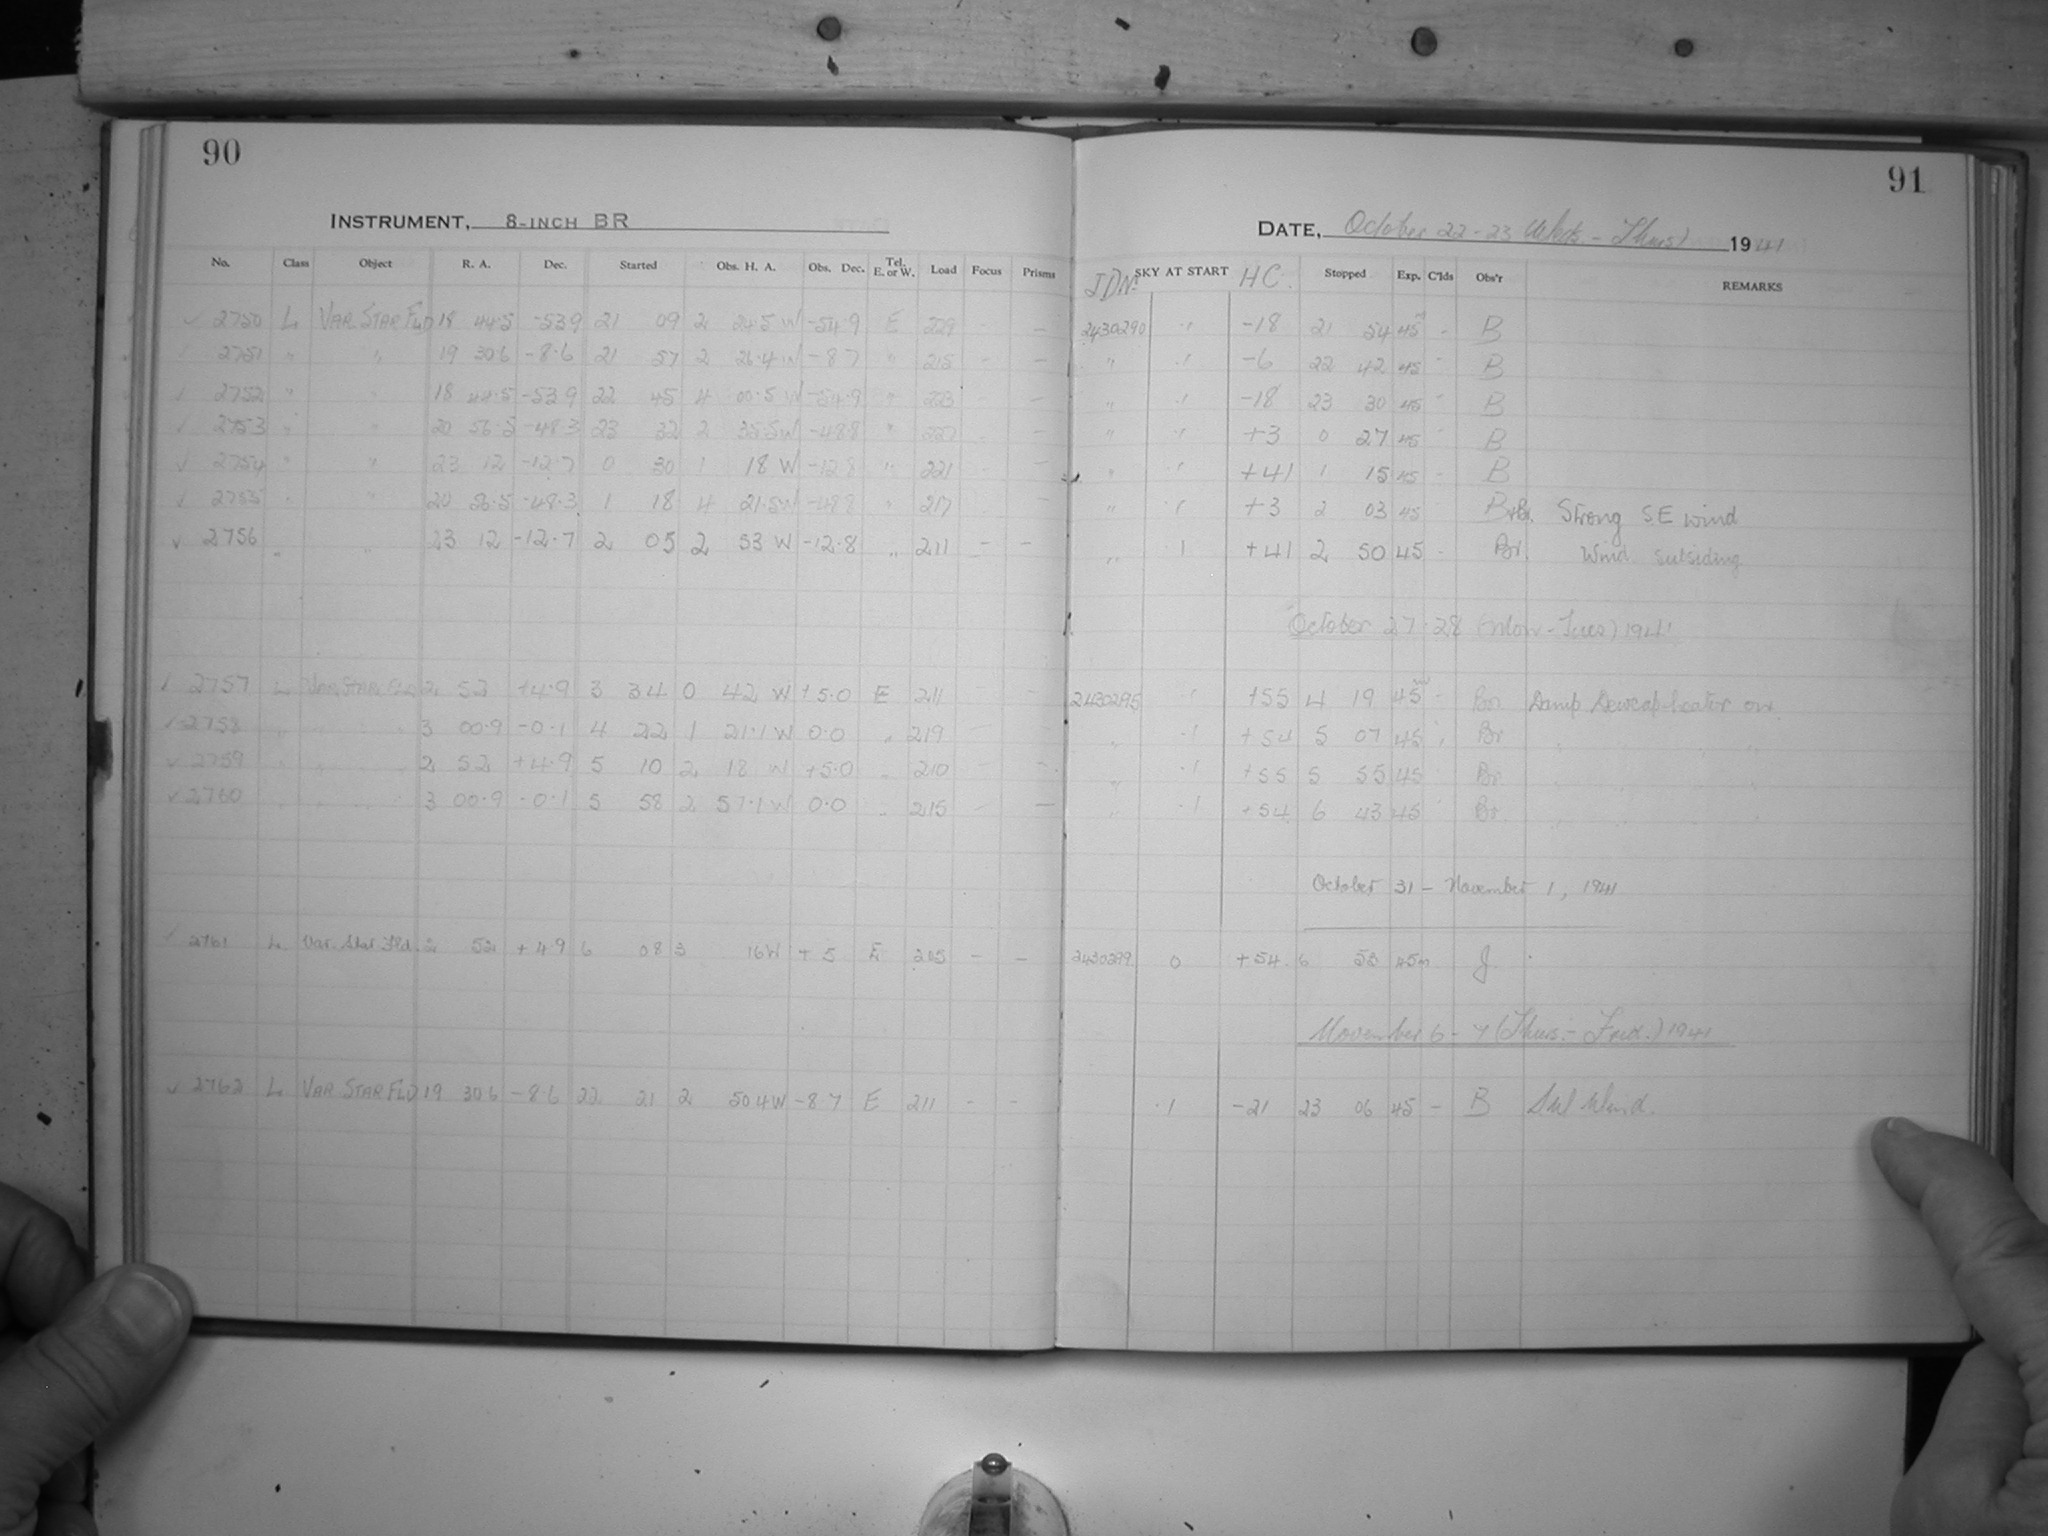 90
91
INSTRUMENT, 8-INCH BR
DATE, October 22-23 Weds - Thurs) 1941
No. Class Object R. A. Dec. Started Obs. H. A. Obs. Dec. Tel. E. or W. Load Focus Prisms JDN. SKY AT START HC. Stopped Exp. C'lds Obs'r REMARKS
✓ 2750 L VAR STAR FLD 18 44.5 -53.9 21 09 2 24.5 W -54.9 E 229 - - 2430290 .1 -18 21 54 45 - B
✓ 2751 " " 19 30.6 -8.6 21 57 2 26.4 W -8.7 " 215 - - " .1 -6 22 42 45 - B
✓ 2752 " " 18 44.5 -53.9 22 45 4 00.5 W -54.9 " 223 - - " .1 -18 23 30 45 - B
✓ 2753 " " 20 56.5 -48.3 23 32 2 35.5 W -48.8 " - - " .1 +3 0 27 45 - B
✓ 2754 " " 23 12 -12.7 0 30 1 18 W -12.8 " 221 - - " .1 +41 1 15 45 - B
✓ 2755 " " 20 56.5 -48.3 1 18 4 21.5 W -48.8 " 217 - - " .1 +3 2 03 45 B+Br. Strong SE wind
✓ 2756 " " 23 12 -12.7 2 05 2 53 W -12.8 " 211 - - " .1 +41 2 50 45 - Br. Wind subsiding
October 27-28 (Mon-Tues) 1941
✓ 2757 L VAR STAR FLD 2 52 +4.9 3 34 0 42 W +5.0 E 211 - - 2430295 .1 +55 4 19 45 - Br Damp Dewcap heater on
✓ 2758 " " 3 00.9 -0.1 4 22 1 21.1 W 0.0 " 219 - - " .1 +54 5 07 45 Br " " "
✓ 2759 " " 2 52 +4.9 5 10 2 18 W +5.0 " 210 - - " .1 +55 5 55 45 Br " " "
✓ 2760 " " 3 00.9 -0.1 5 58 2 57.1 W 0.0 " 215 - - " .1 +54 6 43 45 Br. " " "
October 31 - November 1, 1941
✓ 2761 L Var. Star Fld. 2 52 +4.9 6 08 3 16 W +5 E 205 - - 2430299 0 +54 6 53 45m J
November 6-7 (Thurs.- Frid.) 1941
✓ 2762 L VAR STAR FLD 19 30.6 -8.6 22 21 2 50.4 W -8.7 E 211 - - .1 -21 23 06 45 - B Wind.